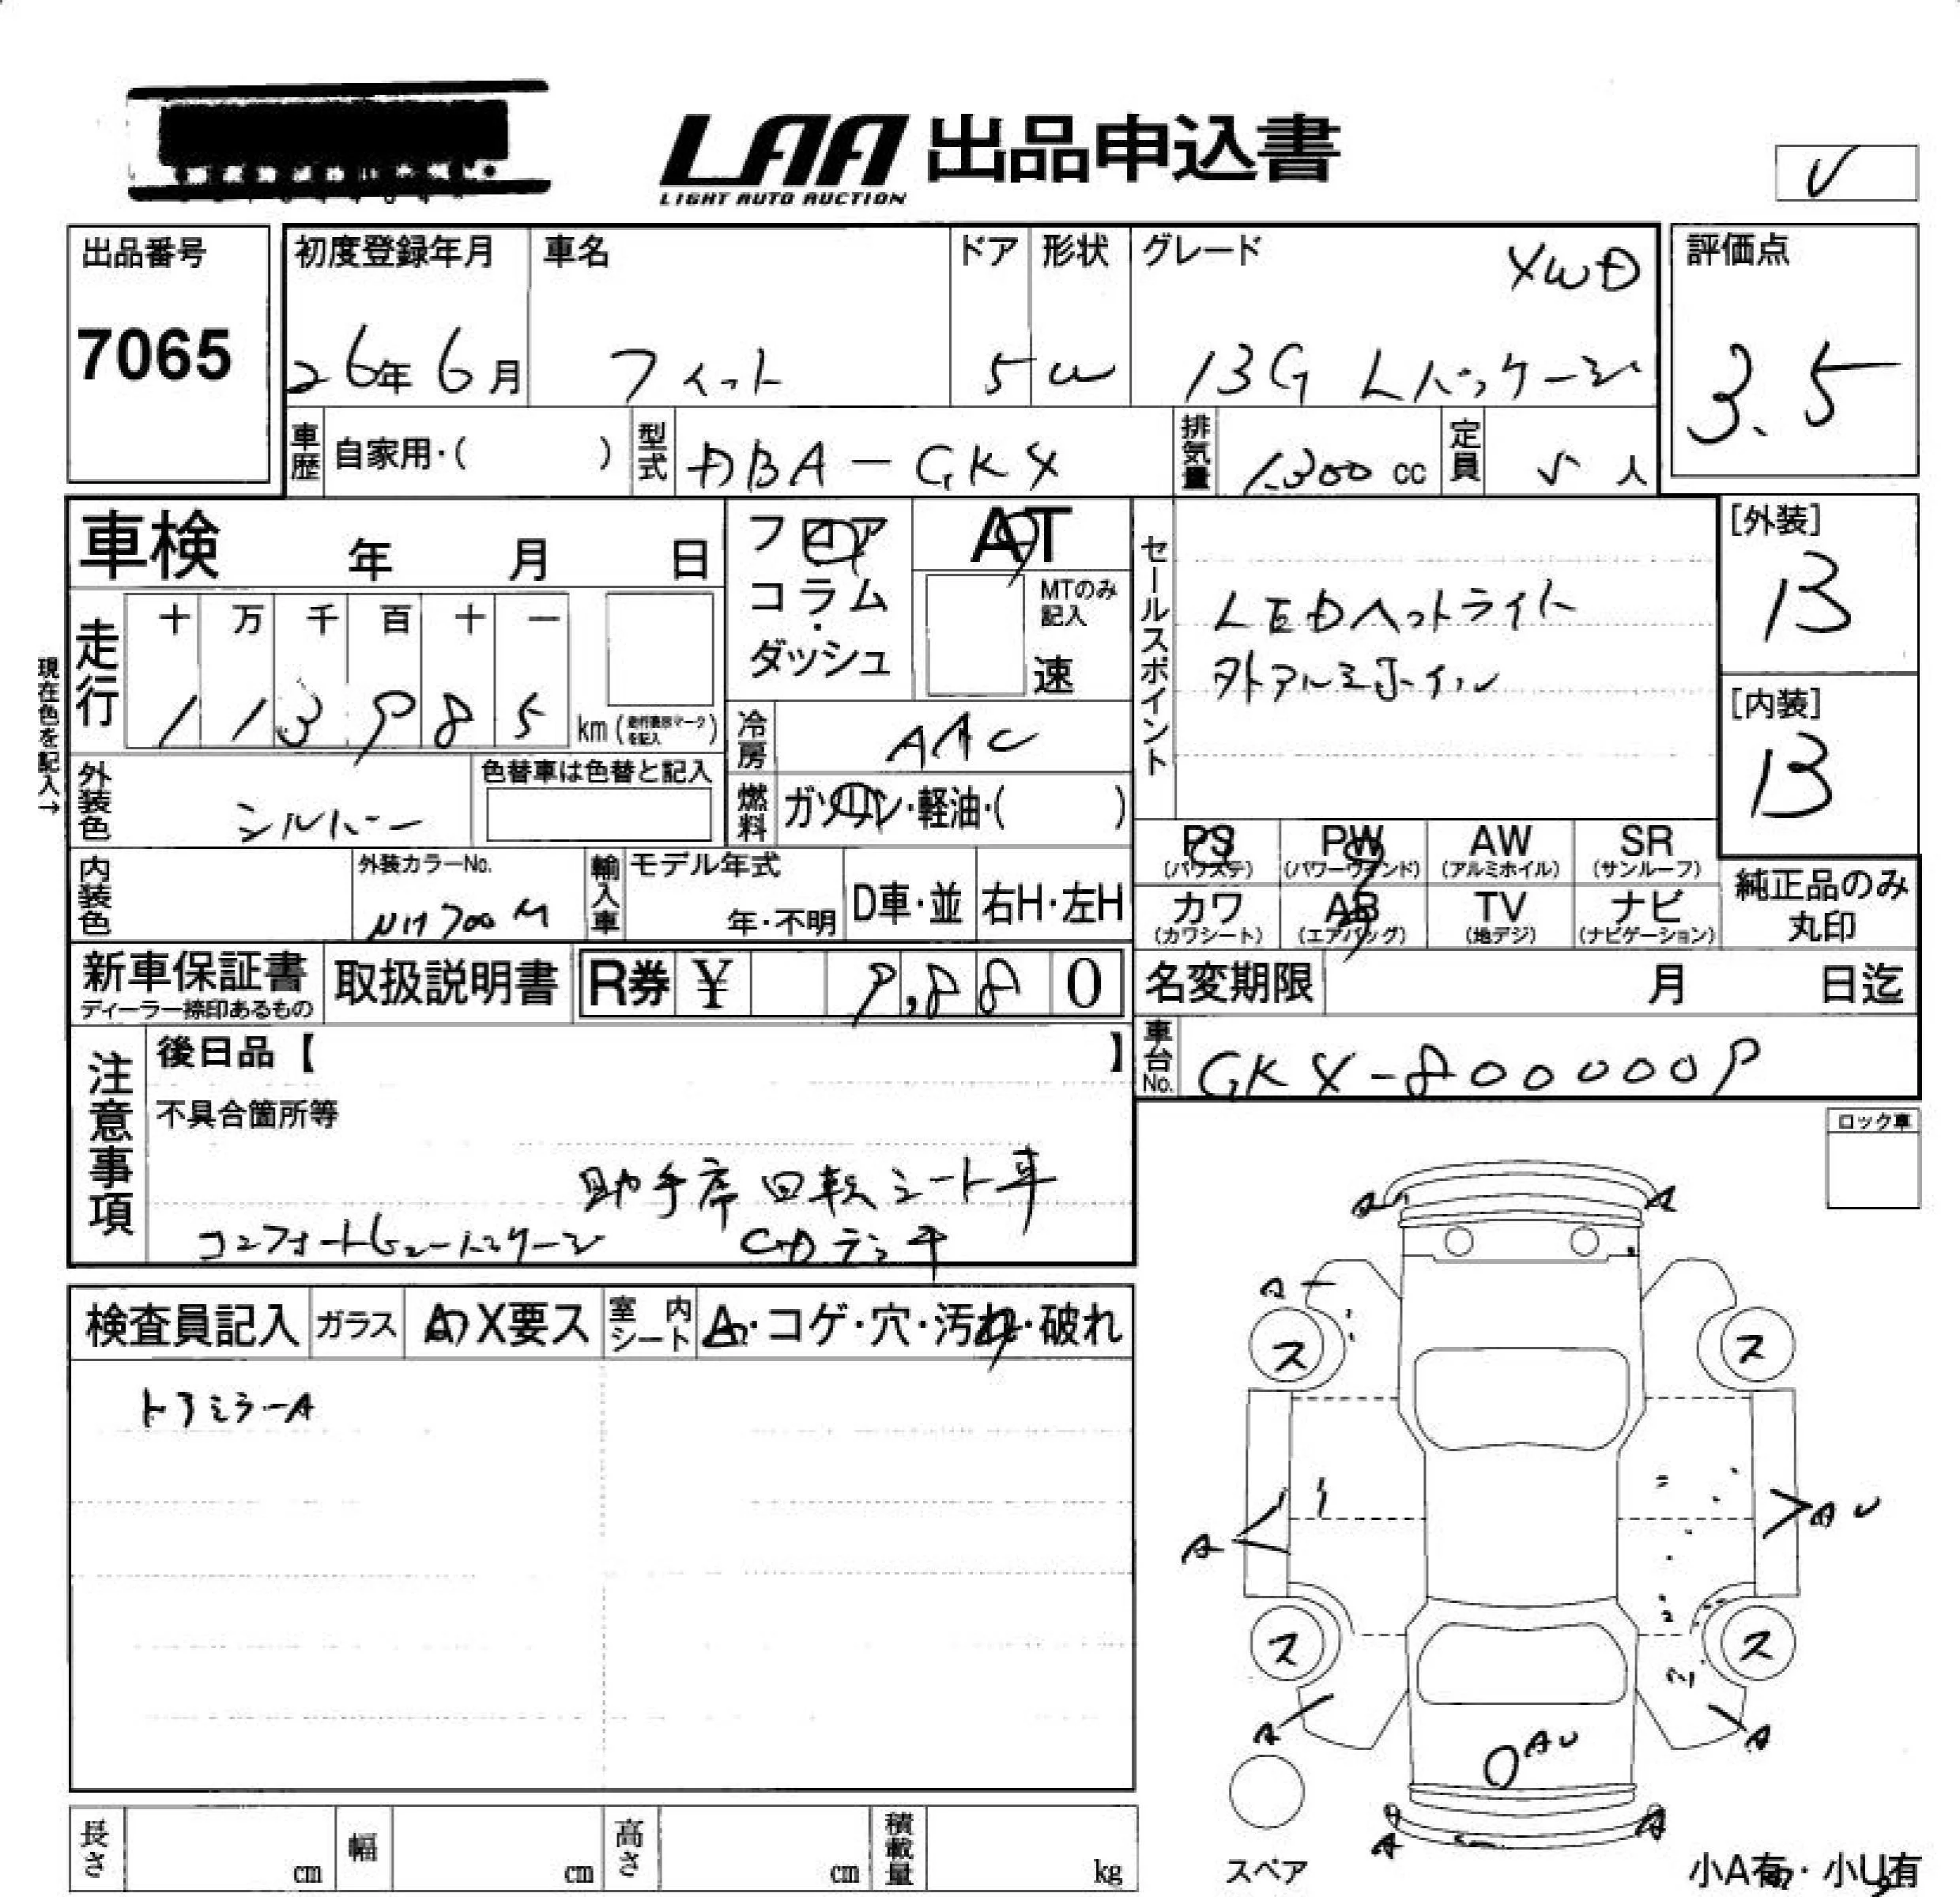 LAA 出品申込書
LIGHT AUTO AUCTION
出品番号
7065
初度登録年月
26年6月
車名
フィット
ドア
5
形状
W
グレード
4WD
13G Lパッケージ
評価点
3.5
車歴
自家用・( )
型式
DBA-GK4
排気量
1300 cc
定員
5 人
車検 年 月 日
フロア
コラム
・
ダッシュ
AT
MTのみ
記入
速
セールスポイント
LEDヘットライト
外アルミホイル
[外装]
B
[内装]
B
現在色を記入→
走行
十 万 千 百 十 一
1 1 3 9 8 5
km (走行表示マークを記入)
冷房
AAC
外装色
シルバー
色替車は色替と記入
燃料
ガソリン・軽油・( )
PS
(パワステ)
PW
(パワーウィンド)
AW
(アルミホイル)
SR
(サンルーフ)
カワ
(カワシート)
AB
(エアバッグ)
TV
(地デジ)
ナビ
(ナビゲーション)
純正品のみ
丸印
内装色
外装カラーNo.
NH700M
輸入車
モデル年式
年・不明
D車・並
右H・左H
新車保証書
ディーラー捺印あるもの
取扱説明書
R券 ¥ 9,880
名変期限 月 日迄
車台No.
GK4-8000009
注意事項
後日品【 】
不具合箇所等
助手席回転シート車
コンフォートビューパッケージ CDラジオ
ロック車
検査員記入
ガラス
A・X要ス
室内シート
A・コゲ・穴・汚れ・破れ
ドアミラーA
A A
A
ス ス
A
A U
ス ス
A
A
A U
A A
スペア
小A有・小U有
長さ cm
幅 cm
高さ cm
積載量 kg